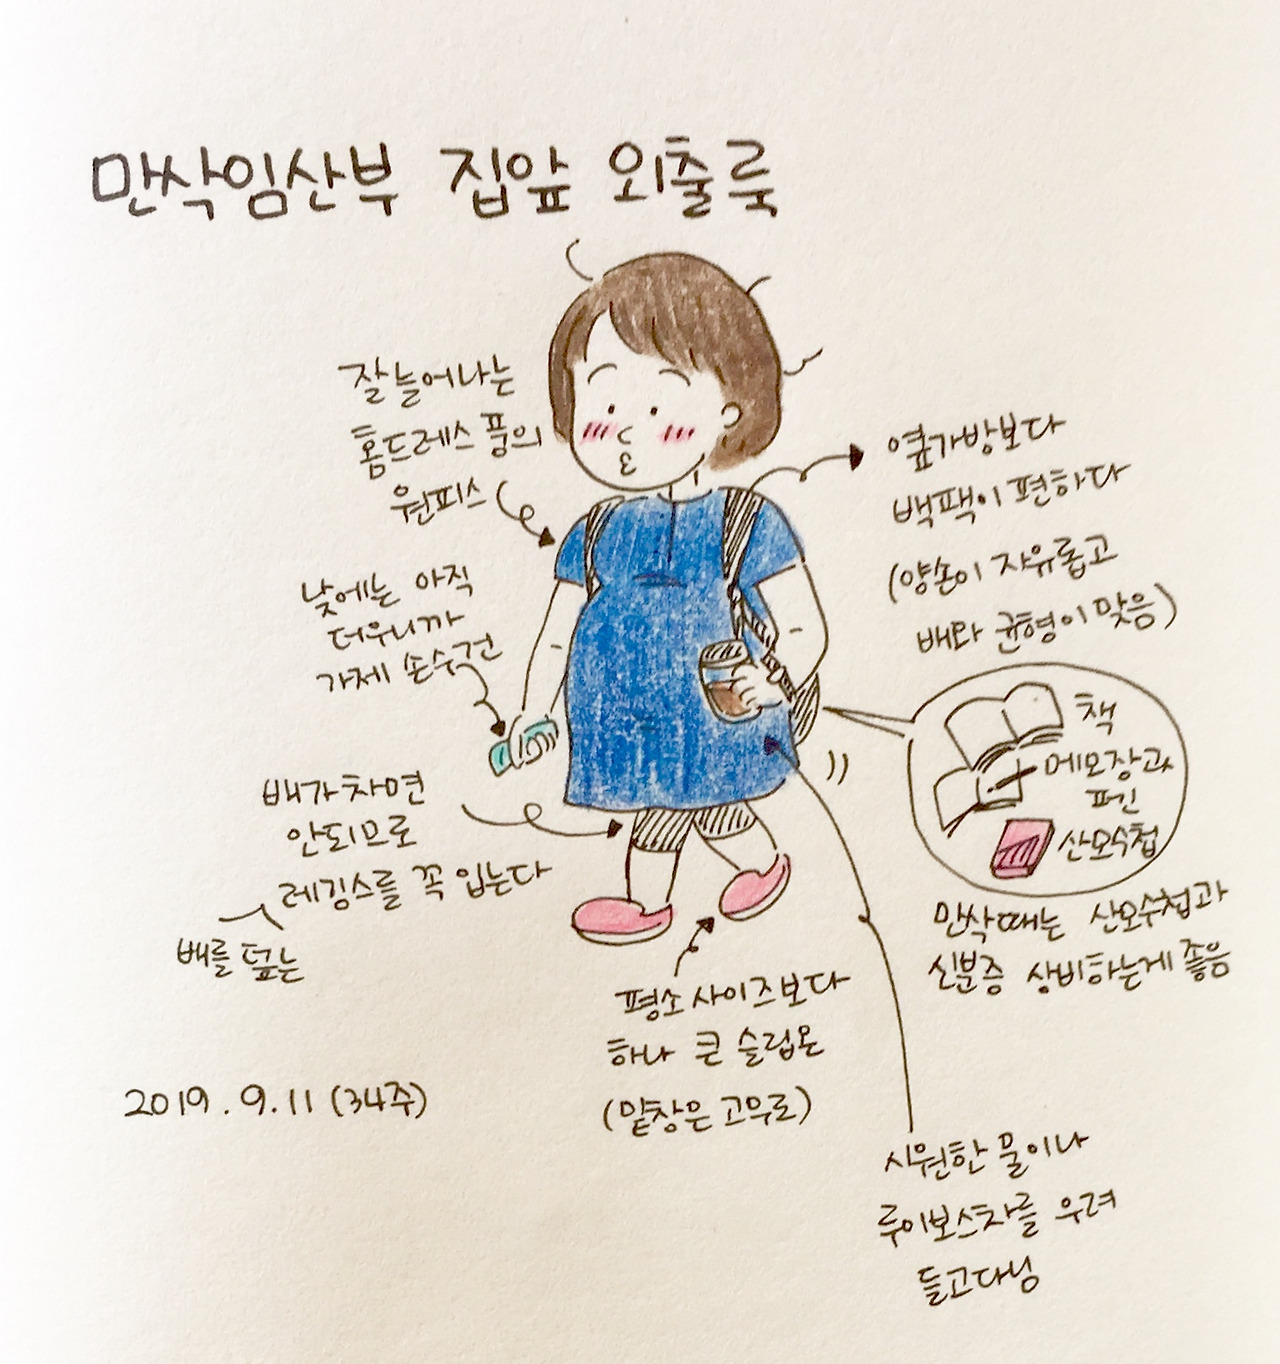 만삭임산부 집앞 외출룩
잘 늘어나는
홈드레스 풍의
원피스
옆가방보다
백팩이 편하다
(양손이 자유롭고
배와 균형이 맞음)
낮에는 아직
더우니까
가제 손수건
책
메모장과
펜긴
산모수첩
배가 차면
안되므로
레깅스를 꼭 입는다
배를 덮는
만삭때는 산모수첩과
신분증 상비하는게 좋음
평소 사이즈보다
하나 큰 슬립온
(밑창은 고무로)
2019.9.11 (34주)
시원한 물이나
루이보스차를 우려
들고다님